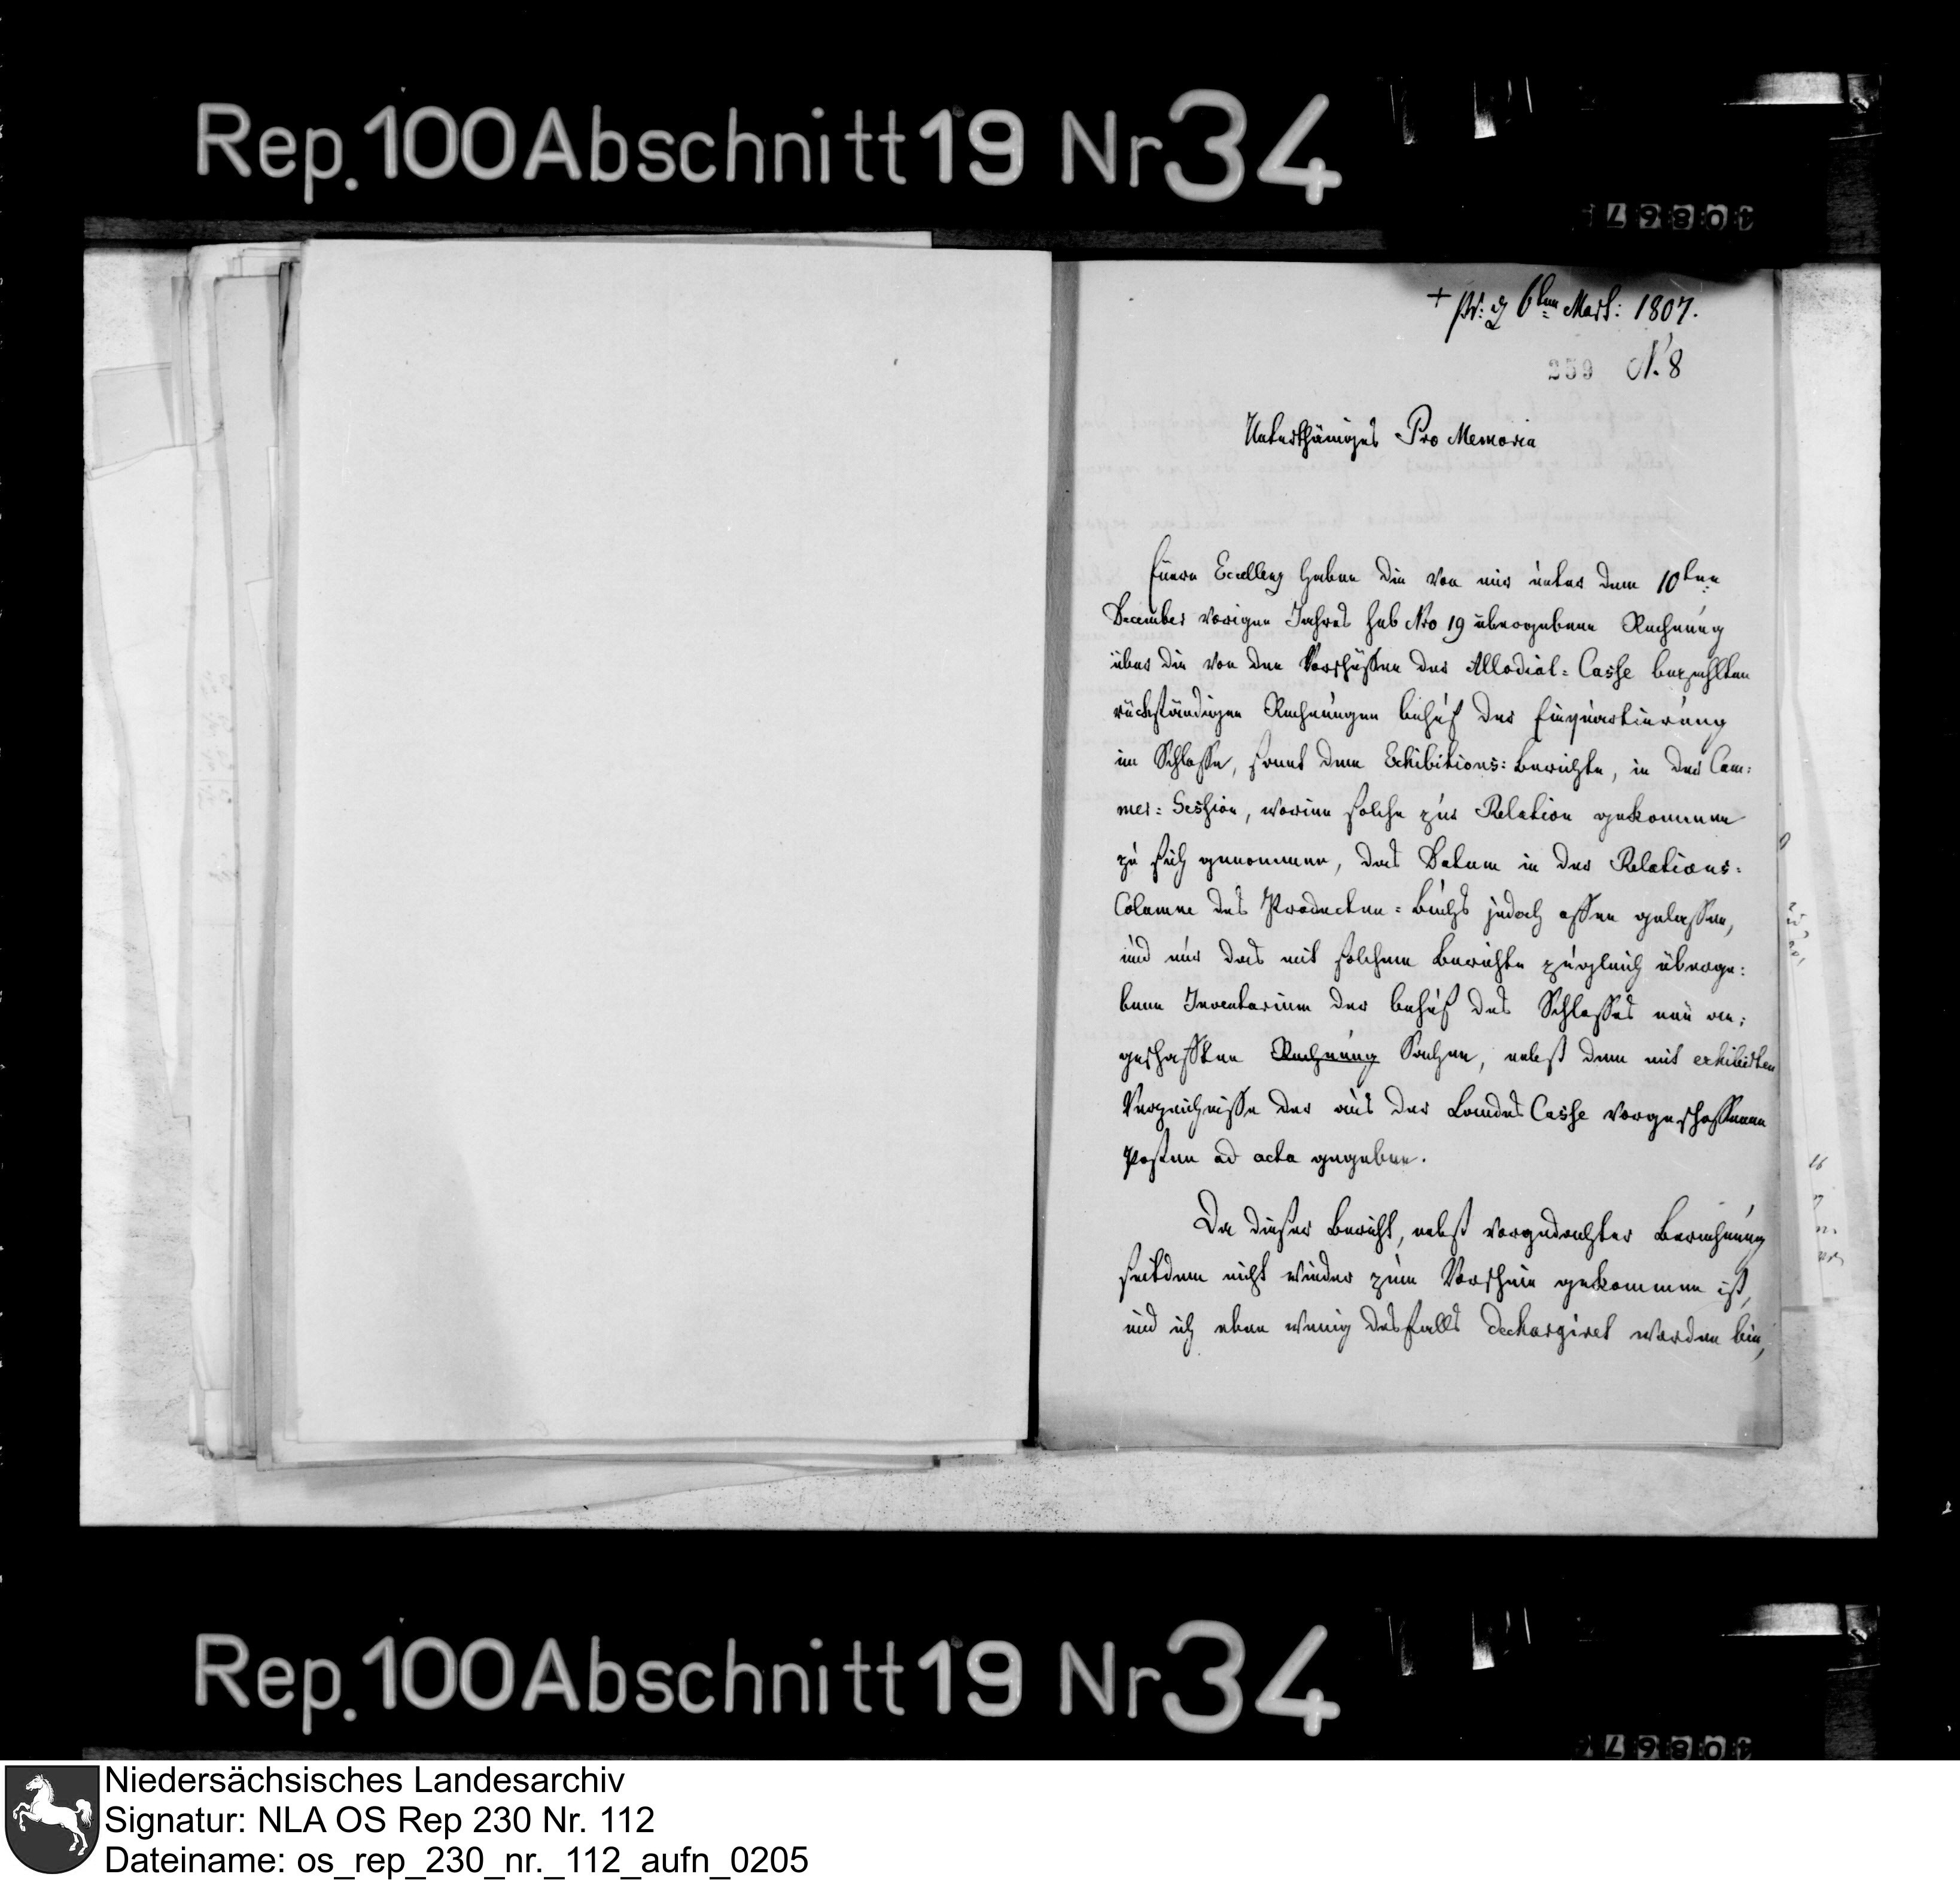 Rep. 100 Abschnitt 19 Nr 34
+ pr: d 6ten Mart: 1807.
259 N. 8
Unterthäniges Pro Memoria
Euere Excellenz haben die von mir unter dem 10ten
December vorigen Jahres sub Nro 19 übergebene Rechnung
über die von den Vorschüßen der Allodial-Casse bezahlten
rückständigen Rechnungen behuf der Einquartierung
im Schlosse, samt dem Exhibitions-Berichte, in der Cam-
mer-Session, worinn solche zur Relation gekommen
zu sich genommen, das Datum in der Relations-
Columne des Producten-Buchs jedoch offen gelassen,
und nur das mit solchem Berichte zugleich überge-
bene Inventarium der behuf des Schlosses neu an-
geschafften Rechnung Sachen, nebst dem mit exhibirten
Verzeichnisse der aus der Landes Casse vorgeschossenen
Posten ad acta gegeben.
Da dieser Bericht, nebst vorgedachter Berechnung
seitdem nicht wieder zum Vorschein gekommen ist,
und ich eben wenig desfalls dechargiret worden bin,
Rep. 100 Abschnitt 19 Nr 34
Niedersächsisches Landesarchiv
Signatur: NLA OS Rep 230 Nr. 112
Dateiname: os_rep_230_nr._112_aufn_0205